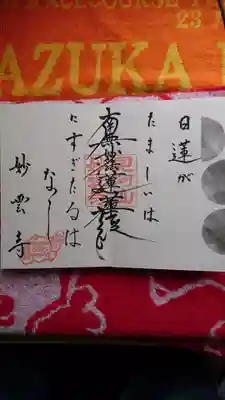 RACECOURSE
23
AZUKA
日蓮が
たましいは
南無妙法蓮華経に
すぎたるは
なし
妙雲寺